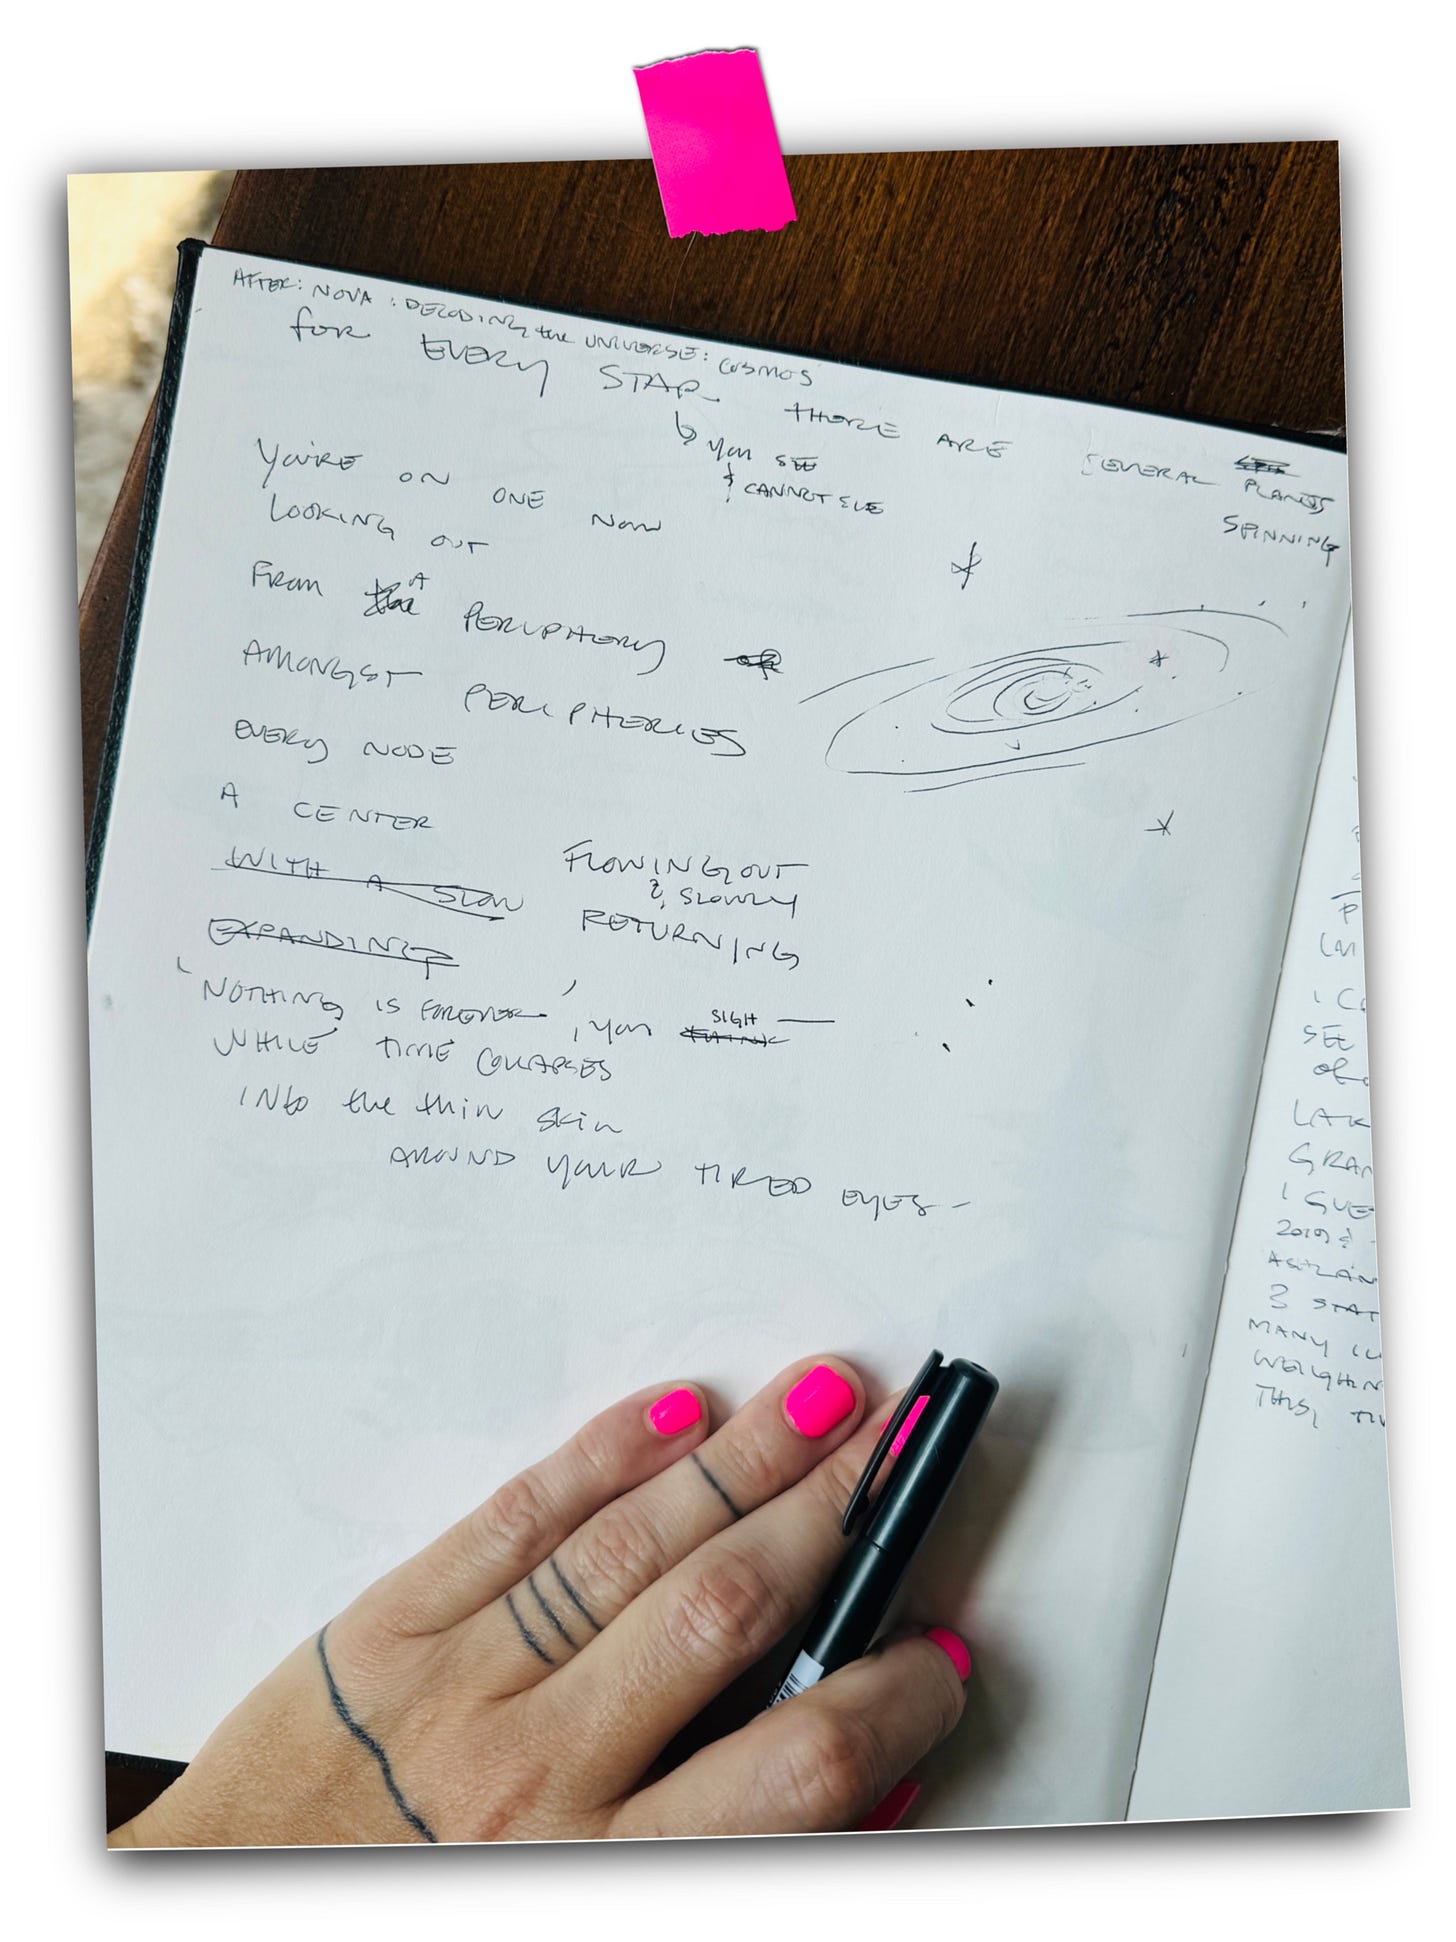 AFTER: NOVA: DECODING the UNIVERSE: COSMOS
for EVERY STAR THERE ARE SEVERAL PLANETS
you SEE
& CANNOT SEE
SPINNING
YOU'RE ON ONE NOW
LOOKING OUT
FROM A PERIPHERY
AMONGST PERIPHERIES
EVERY NODE
A CENTER
WITH A SLOW
FLOWING OUT
& SLOWLY
EXPANDING
RETURNING
'NOTHING IS FOREVER', you SIGH —
WHILE TIME COLLAPSES
INto the thin skin
AROUND YOUR TIRED EYES -
SEE
I GUE
2019 &
3 STAT
MANY
WEIGHIN
THIS,